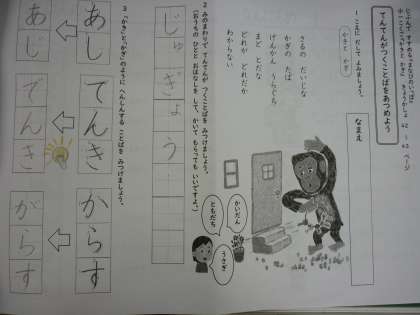 てんてんがつくことばをあつめよう
かきと かぎ
1 こえに だして よみましょう。
なまえ
さるの だいじな
かぎの たば
げんかん うらぐち
まど とだな
どれが どれだか
わからない
かいだん
ともだち
うさぎ
2 みのまわりで てんてんが つくことばを みつけましょう。
(おうちの ひとと おはなしを して かいて もらっても いいですよ。)
じゅぎょう
3 「かき」と「かぎ」のように へんしんする ことばを みつけましょう。
あし
あじ
てんき
でんき
からす
がらす